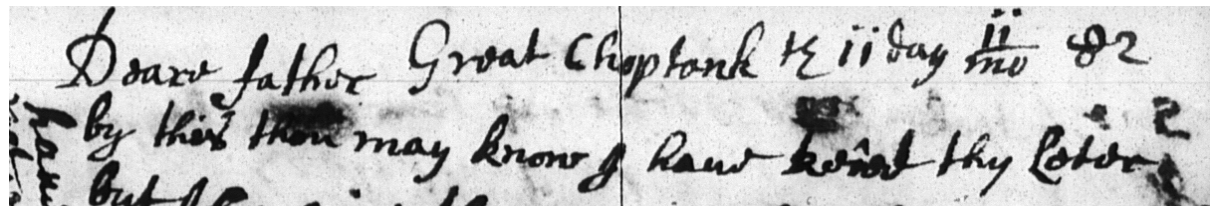 Deare father Great Choptank ye ii day ii mo 82
by this thou may know I have thy Leter
but